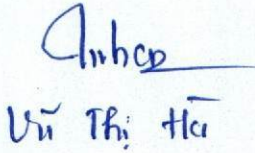 Vũ Thị Hà